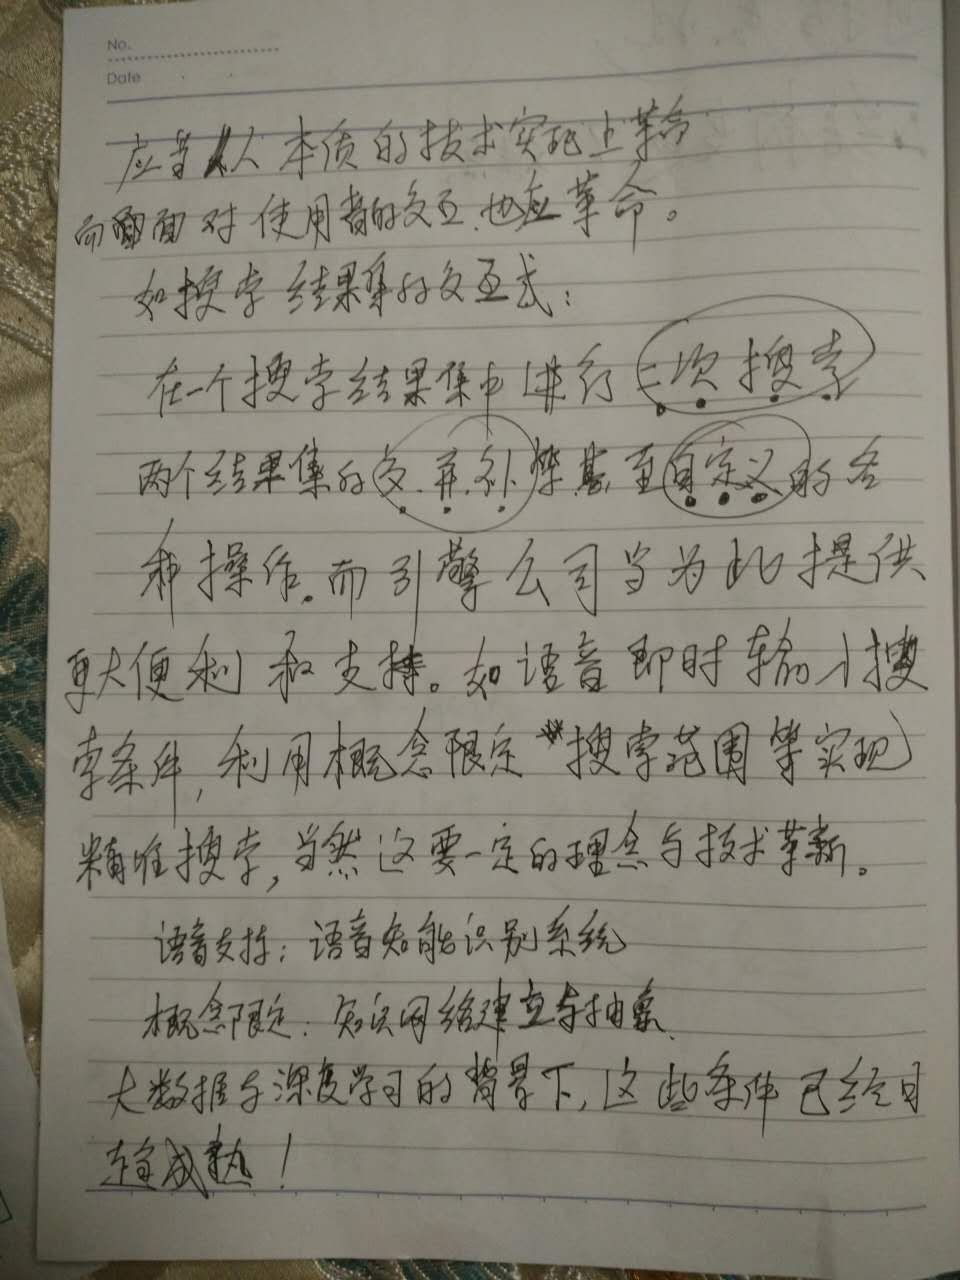 No.
Date
应当从本质的技术实现上革命
而面对使用者的交互也应革命。
如搜索结果集的交互式：
在一个搜索结果集中进行二次搜索
两个结果集的交.并.补 等.甚至自定义的各
种操作。而引擎公司当为此提供
更大便利和支持。如语音即时输入搜
索条件，利用概念限定搜索范围等实现
精准搜索，当然这要一定的理念与技术革新。
语音支持：语音知能识别系统
概念限定：知识网络建立与抽象
大数据与深度学习的背景下，这些条件已经日
趋成熟！